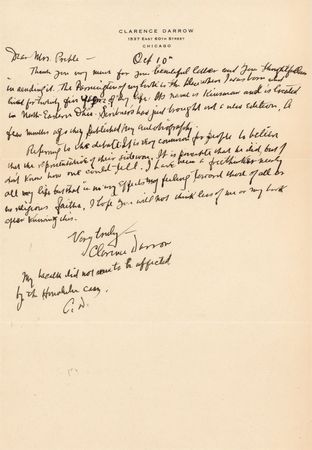 CLARENCE DARROW
1537 EAST 60TH STREET
CHICAGO
Dear Mrs. Oct 10th
Thank you very much for your beautiful letter and your thoughtfulness
in sending it. The Farmington of my book is the place where I was born and
lived for twenty five years of my life. Its name is Kinsman and is located
in North-Eastern Ohio. Scribner's has just brought out a new edition. A
few months ago they published my autobiography.
Referring to the debate it is very common for people to believe
that the of their side won. It is possible that he did but I
don't know how one could tell. I have been a freethinker nearly
all my life but that in no way affects my feeling toward those of all or
no religious faiths. I hope you will not think less of me or my book
after knowing this.
Very truly
Clarence Darrow
My health did not seem to be affected
by the Honolulu case.
C. D.